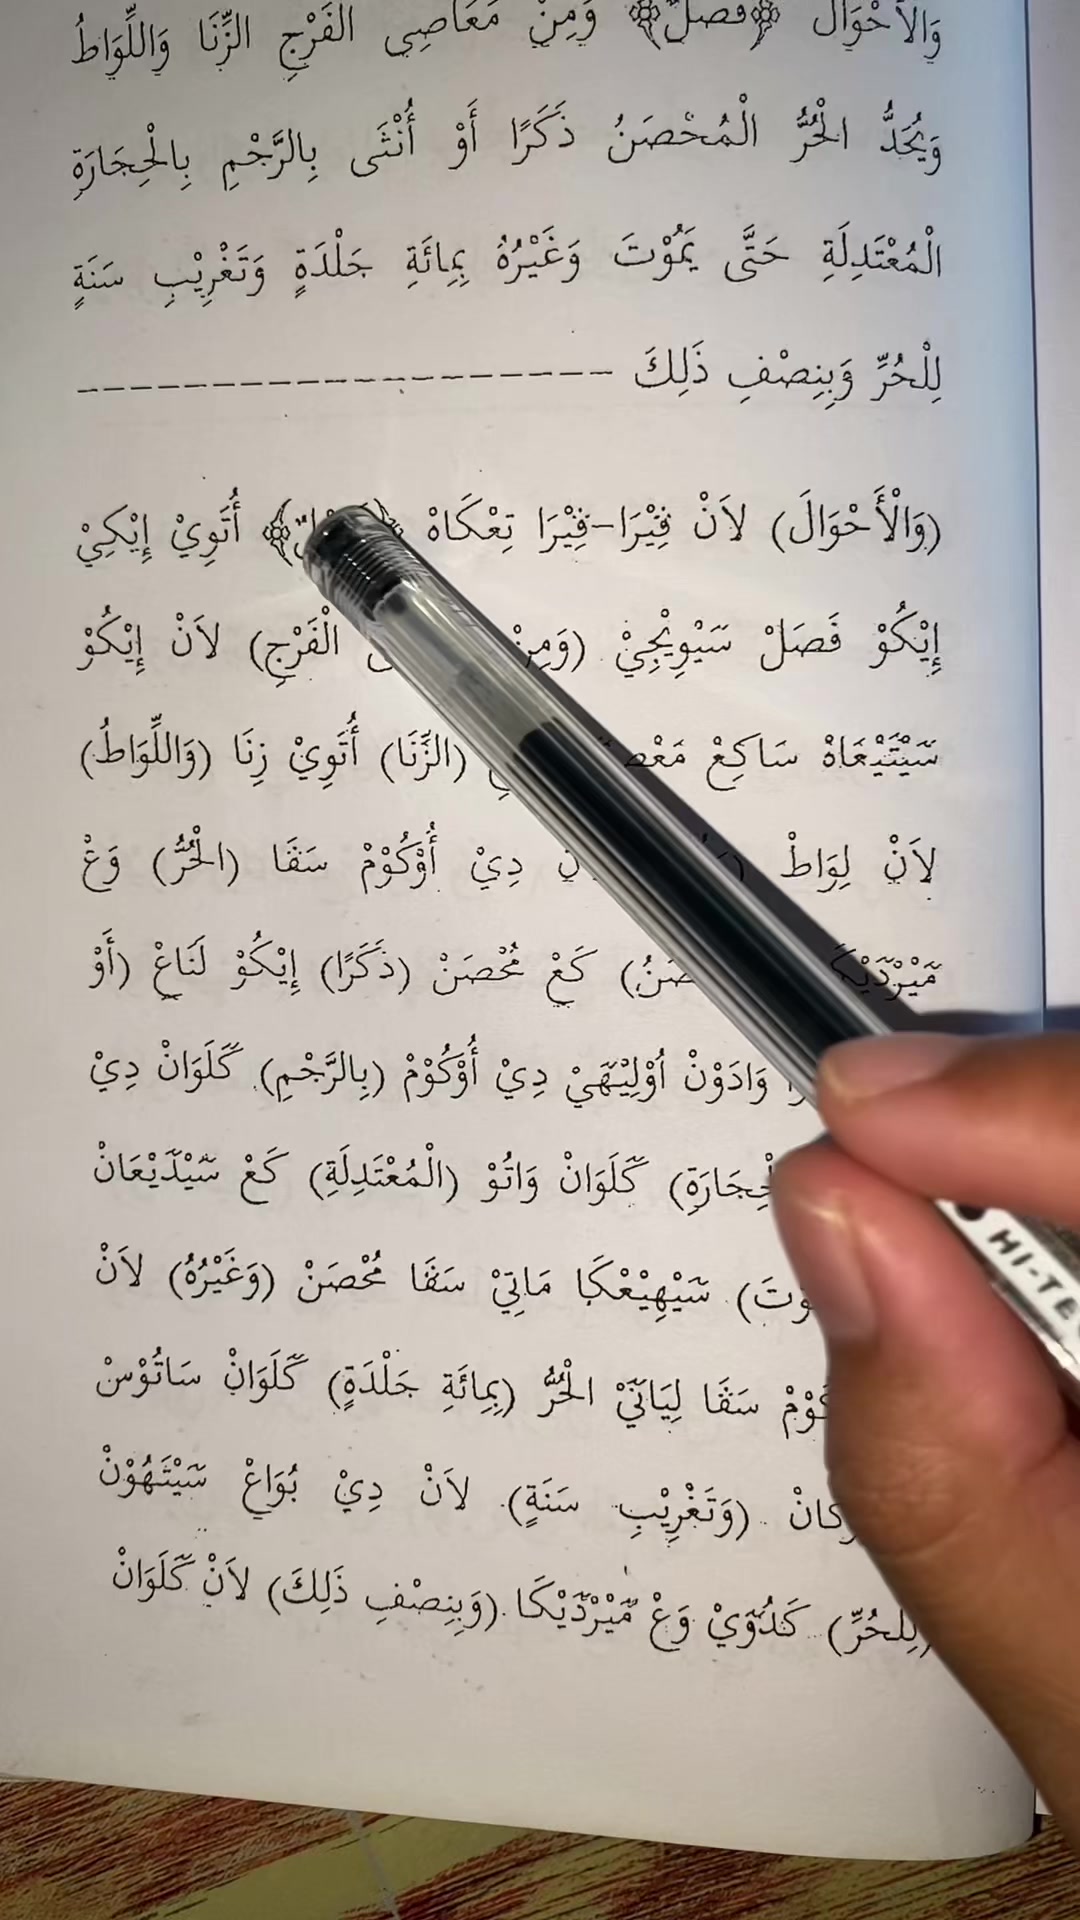 وَالْأَحْوَالَ ﴿فَصْلٌ﴾ وَمِنْ مَعَاصِى الْفَرْجِ الزِّنَا وَاللِّوَاطُ
وَيُحَدُّ الْحُرُّ الْمُحْصَنُ ذَكَرًا أَوْ أُنْثَى بِالرَّجْمِ بِالْحِجَارَةِ
الْمُعْتَدِلَةِ حَتَّى يَمُوْتَ وَغَيْرُهُ بِمِائَةِ جَلْدَةٍ وَتَغْرِيْبِ سَنَةٍ
لِلْحُرِّ وَبِنِصْفِ ذَلِكَ
(وَالْأَحْوَالَ) لاَنْ ڤِيْرَا-ڤِيْرَا تِعْكَاهْ أُتَوِيْ إِيْكِيْ
إِيْكُوْ فَصَلْ سَيْوِيْجِيْ (وَمِنْ الْفَرْجِ) لاَنْ إِيْكُوْ
سَاكِعْ (الزِّنَا) أُتَوِيْ زِنَا (وَاللِّوَاطُ)
لاَنْ لِوَاطْ دِيْ أُوْكُوْمْ سَڤَا (الْحُرُّ) وَعْ
كَعْ مُحْصَنْ (ذَكَرًا) إِيْكُوْ لَنَاعْ (أَوْ
وَادَوْنْ دِيْ أُوْكُوْمْ (بِالرَّجْمِ) كَلَوَانْ دِيْ
كَلَوَانْ وَاتُوْ (الْمُعْتَدِلَةِ) كَعْ
سَيْهِيْعْكَا مَاتِيْ سَڤَا مُحْصَنْ (وَغَيْرُهُ) لاَنْ
سَڤَا لِيَانَيْ الْحُرُّ (بِمِائَةِ جَلْدَةٍ) كَلَوَانْ سَاتُوْسْ
(وَتَغْرِيْبِ سَنَةٍ) لاَنْ دِيْ بُوَاعْ سَيْتَهُوْنْ
(لِلْحُرِّ) كَدُوَيْ وَعْ مَيْرْدَيْكَا (وَبِنِصْفِ ذَلِكَ) لاَنْ كَلَوَانْ
HI-TE